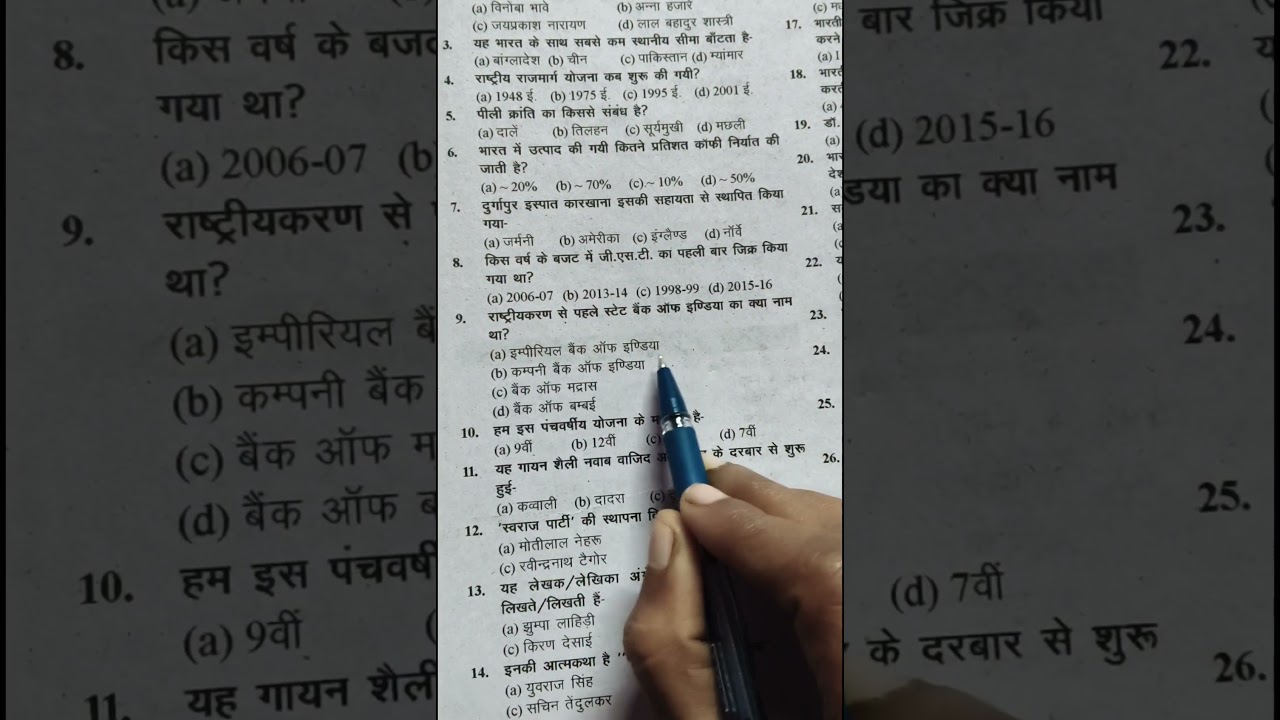 (a) विनोबा भावे (b) अन्ना हजारे
(c) जयप्रकाश नारायण (d) लाल बहादुर शास्त्री
3. यह भारत के साथ सबसे कम स्थानीय सीमा बाँटता है-
(a) बांग्लादेश (b) चीन (c) पाकिस्तान (d) म्यांमार
4. राष्ट्रीय राजमार्ग योजना कब शुरू की गयी?
(a) 1948 ई. (b) 1975 ई. (c) 1995 ई. (d) 2001 ई.
5. पीली क्रांति का किससे संबंध है?
(a) दालें (b) तिलहन (c) सूर्यमुखी (d) मछली
6. भारत में उत्पाद की गयी कितने प्रतिशत कॉफी निर्यात की
जाती है?
(a) ~ 20% (b) ~ 70% (c) ~ 10% (d) ~ 50%
7. दुर्गापुर इस्पात कारखाना इसकी सहायता से स्थापित किया
गया-
(a) जर्मनी (b) अमेरीका (c) इंग्लैण्ड (d) नॉर्वे
8. किस वर्ष के बजट में जी.एस.टी. का पहली बार जिक्र किया
गया था?
(a) 2006-07 (b) 2013-14 (c) 1998-99 (d) 2015-16
9. राष्ट्रीयकरण से पहले स्टेट बैंक ऑफ इण्डिया का क्या नाम
था?
(a) इम्पीरियल बैंक ऑफ इण्डिया
(b) कम्पनी बैंक ऑफ इण्डिया
(c) बैंक ऑफ मद्रास
(d) बैंक ऑफ बम्बई
10. हम इस पंचवर्षीय योजना के है-
(a) 9वीं (b) 12वीं (c) (d) 7वीं
11. यह गायन शैली नवाब वाजिद के दरबार से शुरू
हुई-
(a) कव्वाली (b) दादरा (c)
12. 'स्वराज पार्टी' की स्थापना
(a) मोतीलाल नेहरू
(c) रवीन्द्रनाथ टैगोर
13. यह लेखक/लेखिका
लिखते/लिखती हैं-
(a) झुम्पा लाहिड़ी
(c) किरण देसाई
14. इनकी आत्मकथा है
(a) युवराज सिंह
(c) सचिन तेंदुलकर
17.
18.
19. डॉ.
20.
21.
22.
23.
24.
25.
26.